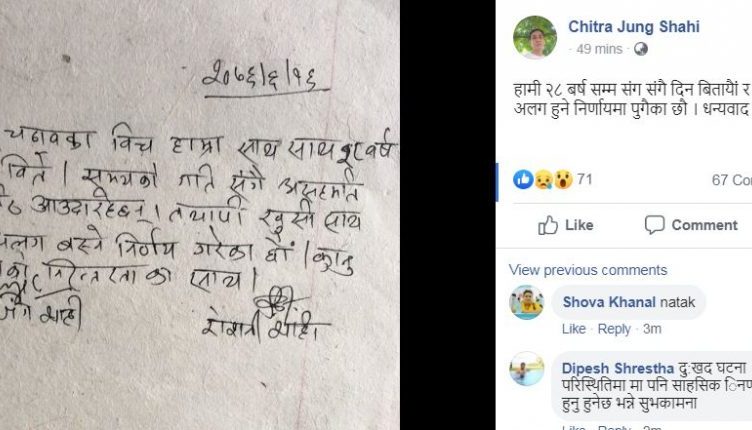 २०७६/६/१६
चढावका विच हाम्रा साथ साथ २८ वर्ष
विते । समयको गति संगै असहमति
आउदारहेछन् । तथापी खुसी साथ
अलग बस्ने निर्णय गरेका छौं । कानु
निरन्तरता का साथ ।
जंग शाही
रोशनी शाही ।
Chitra Jung Shahi
49 mins ·
हामी २८ बर्ष सम्म संग संगै दिन बितायौं र
अलग हुने निर्णायमा पुगैका छौ । धन्यवाद
71
67 Co
Like Comment
View previous comments
Shova Khanal natak
Like · Reply · 3m
Dipesh Shrestha दु:खद घटना
परिस्थितिमा मा पनि साहसिक
हुनु हुनेछ भन्ने सुभकामना